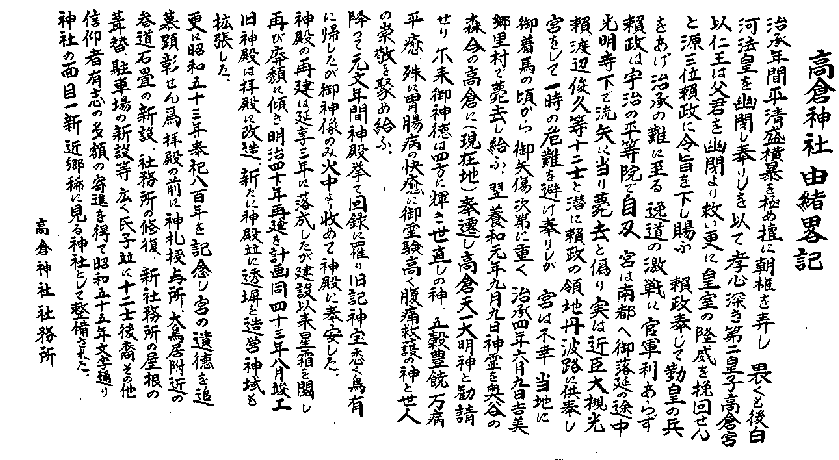 高倉神社 由緒畧記
治承年間平清盛横暴を極め擅に朝権を弄し 畏くも後白
河法皇を幽閉し奉りしを以て孝心深き第二皇子高倉宮
以仁王は父君を幽閉より救い更に皇室の隆威を挽回せん
と源三位頼政に令旨を下し賜ふ 頼政奉じて勤皇の兵
をあげ治承の難に至る 逆道の激戦に官軍利あらず
頼政は宇治の平等院で自刃 宮は南都へ御落延の途中
光明寺下で流矢に当り薨去と偽り実は近臣大槻光
頼渡辺俊久等十二士と潜に頼政の領地丹波路に供奉し
宮をして一時の危難を避け奉りしが 宮は不幸 当地に
御着馬の頃から 御矢傷次第に重く 治承四年六月九日吉美
郷里村で薨去し給ふ 翌養和元年九月九日神霊を奥谷の
森今の高倉に（現在地）奉遷し高倉天一大明神と勧請
せり 尓来御神徳は四方に輝き世直しの神 五穀豊饒 万病
平癒 殊に胃腸病の快癒に御霊験高く腹痛救護の神と世人
の崇敬を聚め給ふ
降って元文年間神殿挙て回録に罹り旧記神宝悉く烏有
に帰したが御神像のみ火中より收めて神殿に奉安した。
神殿の再建は延享三年に落成したが建設以来星霜を閲し
再び廃頽に傾き明治四十年再建を計画同四十三年八月竣工
旧神殿は拝殿に改造、新たに神殿並に透塀を造営神域も
拡張した。
更に昭和五十三年奉祀八百年を記念し宮の遺徳を追
慕顕彰せん為 拝殿の前に神札授与所、大鳥居附近の
参道石畳の新設、社務所の修復、新社務所の屋根の
葺替、駐車場の新設等 広く氏子並に十二士後裔その他
信仰者有志の多額の寄進を得て昭和五十五年文字通り
神社の面目一新 近郷稀に見る神社として整備された。
高倉神社社務所